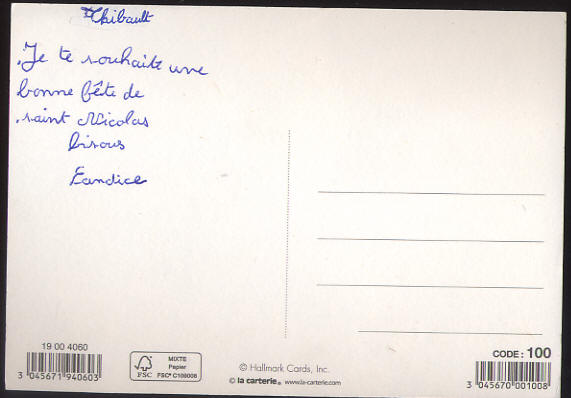 Thibault
Je te souhaite une
bonne fête de
saint Nicolas
bisous
Candice
19 00 4060
3 045671 940603
FSC
MIXTE
Papier
FSC® C109008
© Hallmark Cards, Inc.
© la carterie® www.la-carterie.com
CODE : 100
3 045670 001008